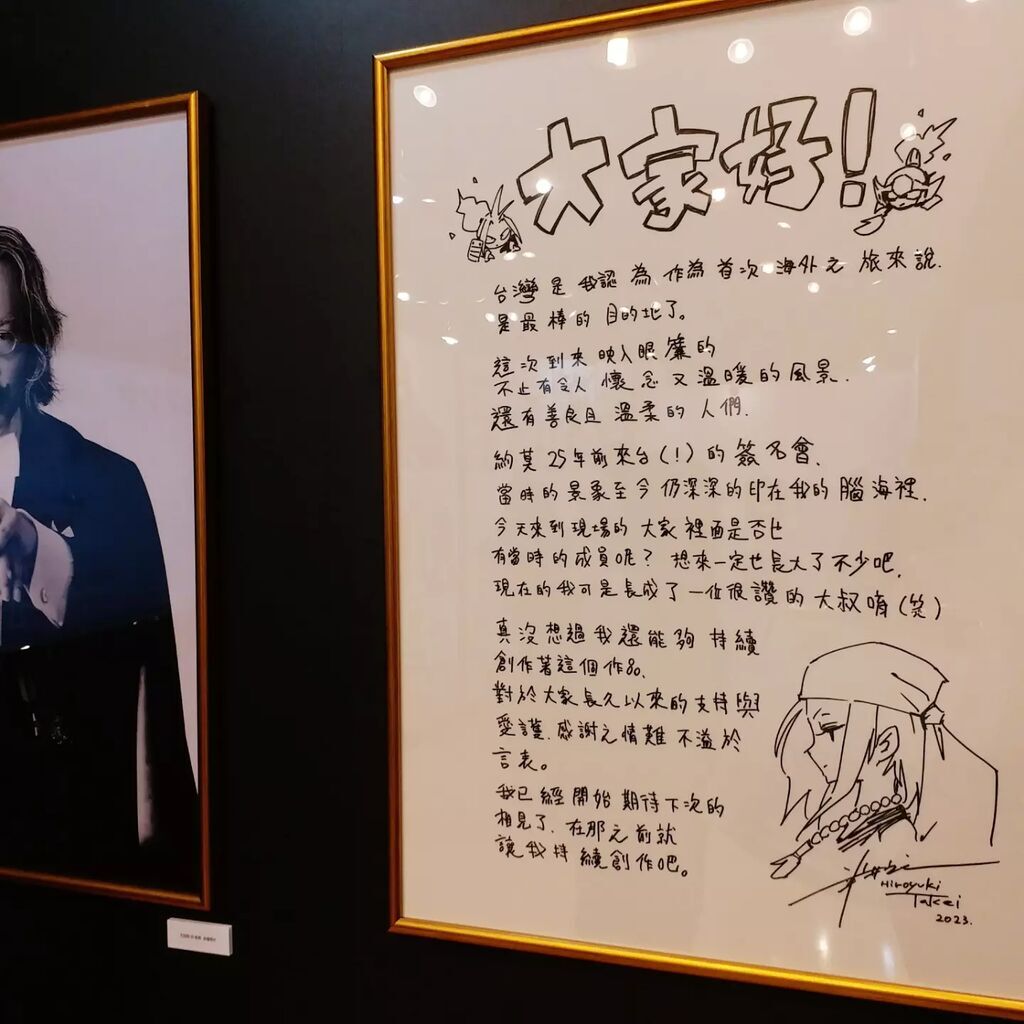 大家好!
台灣是我認為作為首次海外之旅來說.
是最棒的目的地了。
這次到來映入眼簾的
不止有令人懷念又溫暖的風景.
還有善良且溫柔的人們.
約莫25年前來台(!)的簽名會.
當時的景象至今仍深深的印在我的腦海裡.
今天來到現場的大家裡面是否也
有當時的成員呢?想來一定也長大了不少吧.
現在的我可是長成了一位很讚的大叔唷(笑)
真沒想過我還能夠持續
創作著這個作品.
對於大家長久以來的支持與
愛護.感謝之情難不溢於
言表。
我已經開始期待下次的
相見了.在那之前就
讓我持續創作吧。
Hiroyuki
Takei
2023.